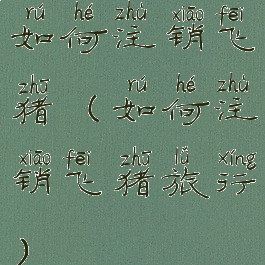 rú hé zhù xiāo fēi
如何注销飞
zhū rú hé zhù
猪（如何注
xiāo fēi zhū lǚ xíng
销飞猪旅行
）